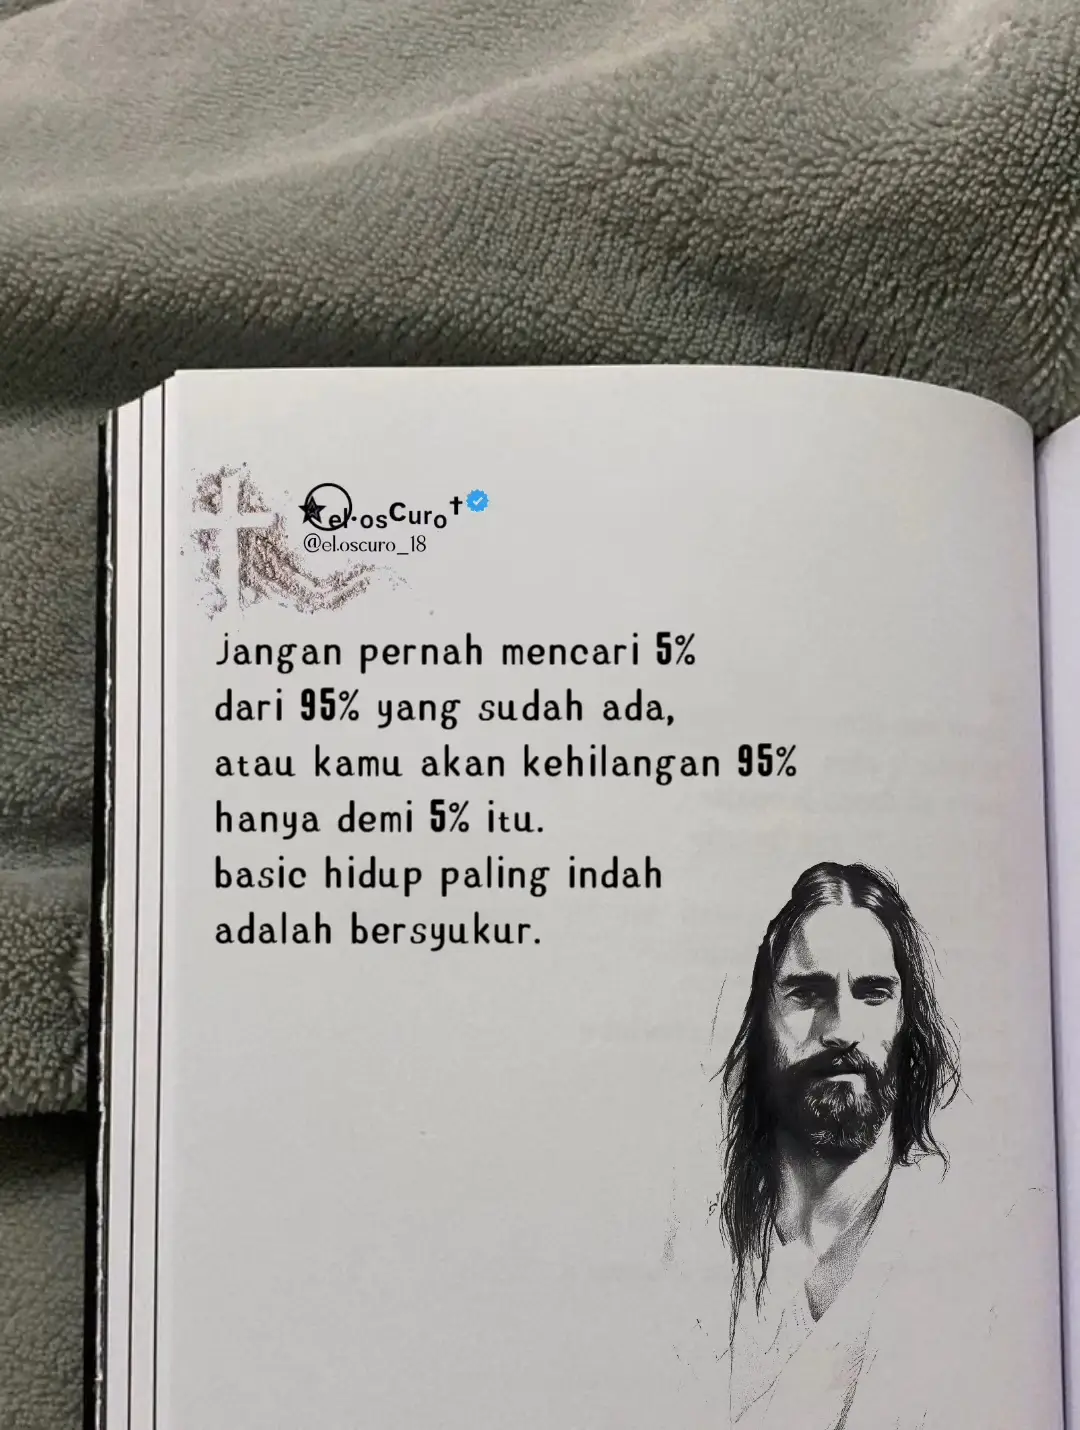 el.oscuro†
@el.oscuro_18
jangan pernah mencari 5%
dari 95% yang sudah ada,
atau kamu akan kehilangan 95%
hanya demi 5% itu.
basic hidup paling indah
adalah bersyukur.